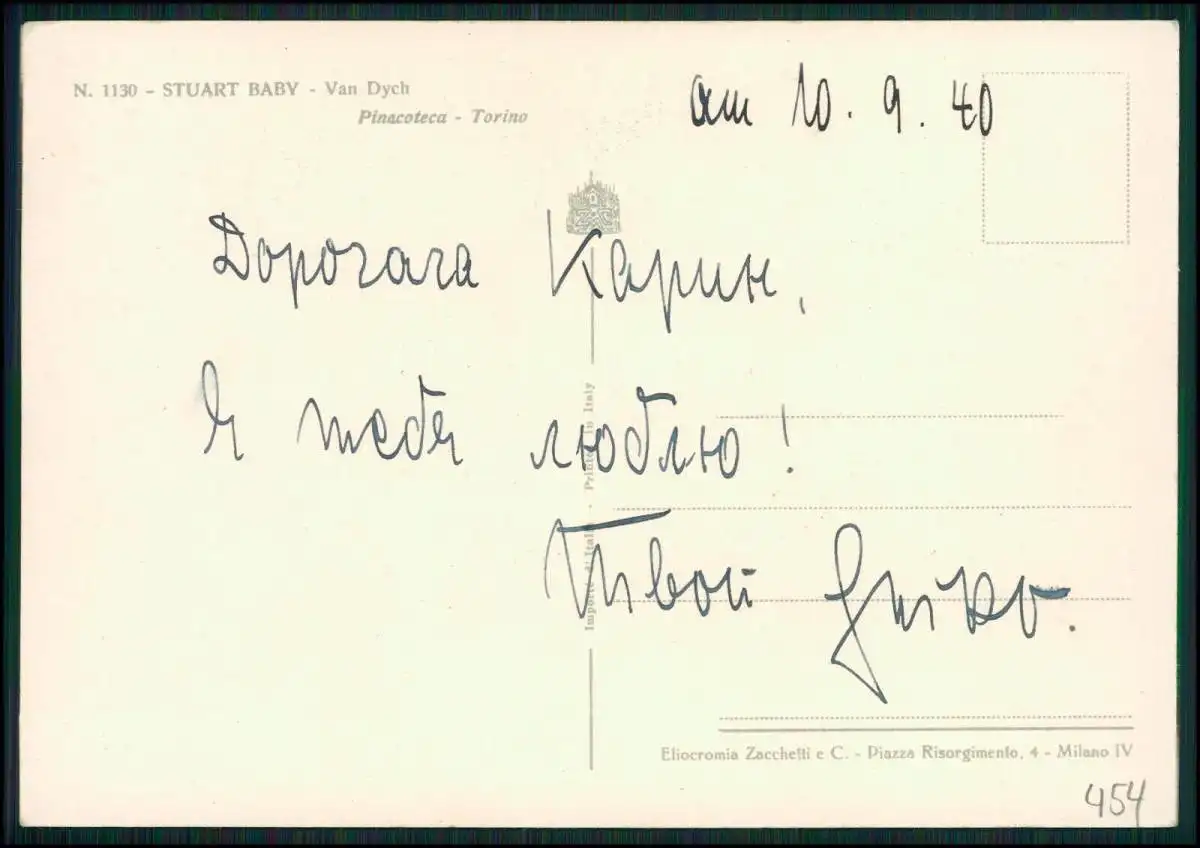 N. 1130 - STUART BABY - Van Dych
Pinacoteca - Torino
am 10. 9. 40
Дорогая Карин,
Я тебя люблю!
Твой
Importé d'Italie - Printed in Italy
Eliocromia Zacchetti e C. - Piazza Risorgimento, 4 - Milano IV
454